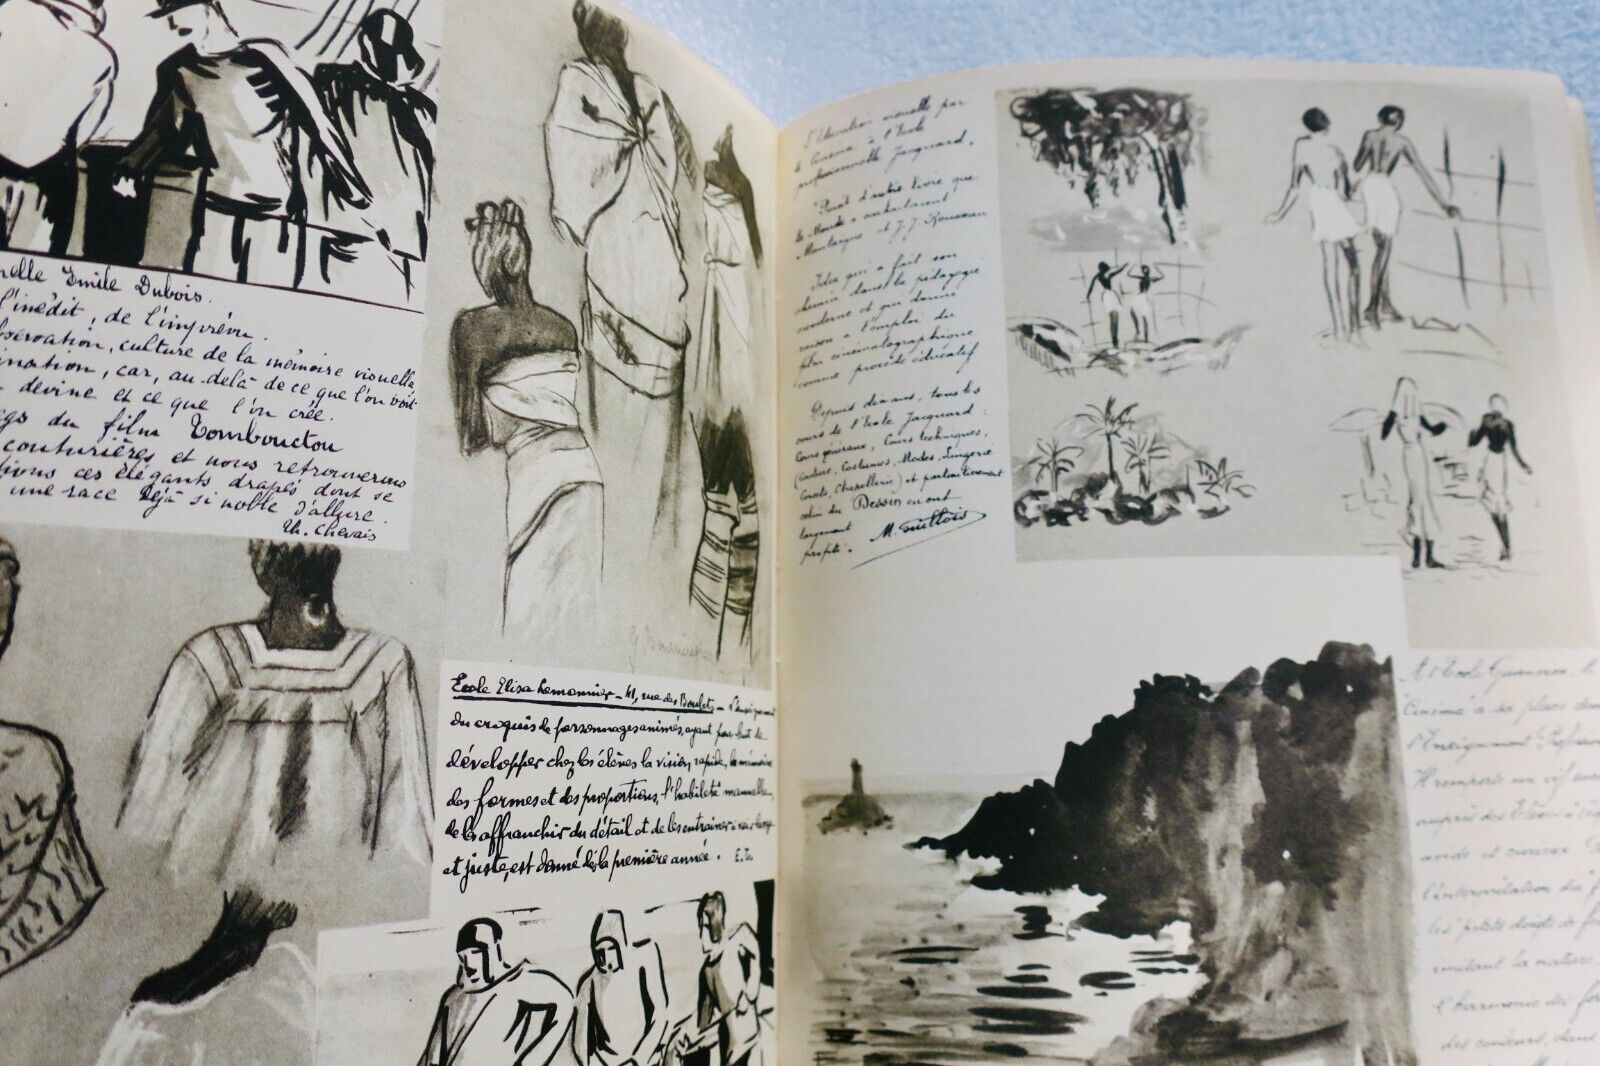 nelle Emile Dubois.
l'inédit, de l'imprévu
observation, culture de la mémoire visuelle,
ination, car, au-delà de ce que l'on voit
devine et ce que l'on crée.
du film Tombouctou
couturières et nous retrouverons
ces élégants drapés dont se
une race déjà si noble d'allure.
Th. Chevais
G. Bourrierel
Ecole Elisa Lemonnier - 41, rue des Boulets - L'enseignement
du croquis de personnages animés, ayant pour but de
développer chez les élèves la vision rapide, la mémoire
des formes et des proportions, l'habileté manuelle,
de les affranchir du détail et de les entraîner à voir large
et juste, est donné dès la première année.
L'Education visuelle par
le Cinéma à l'Ecole
professionnelle Jacquard.
"Point d'autre livre que
le Monde" enchantaient
Montaigne et J.J. Rousseau
Idée qui a fait son
chemin dans la pédagogie
moderne et qui donne
raison à l'emploi du
film cinématographique
comme procédé éducatif
Depuis dix ans, tous les
cours de l'Ecole Jacquard:
Cours généraux, Cours techniques,
(Couture, Costumes, Modes, Lingerie
Corsets, Chemiserie) et particulièrement
celui du Dessin en ont
largement
profité. M. Guillois
A l'Ecole
Cinéma a sa place dans
l'Enseignement Profess
Il remporte un vif
auprès des Elèves
et curieux
l'interprétation du
les petits doigts de
imitant la matière
l'harmonie des
des couleurs, dans